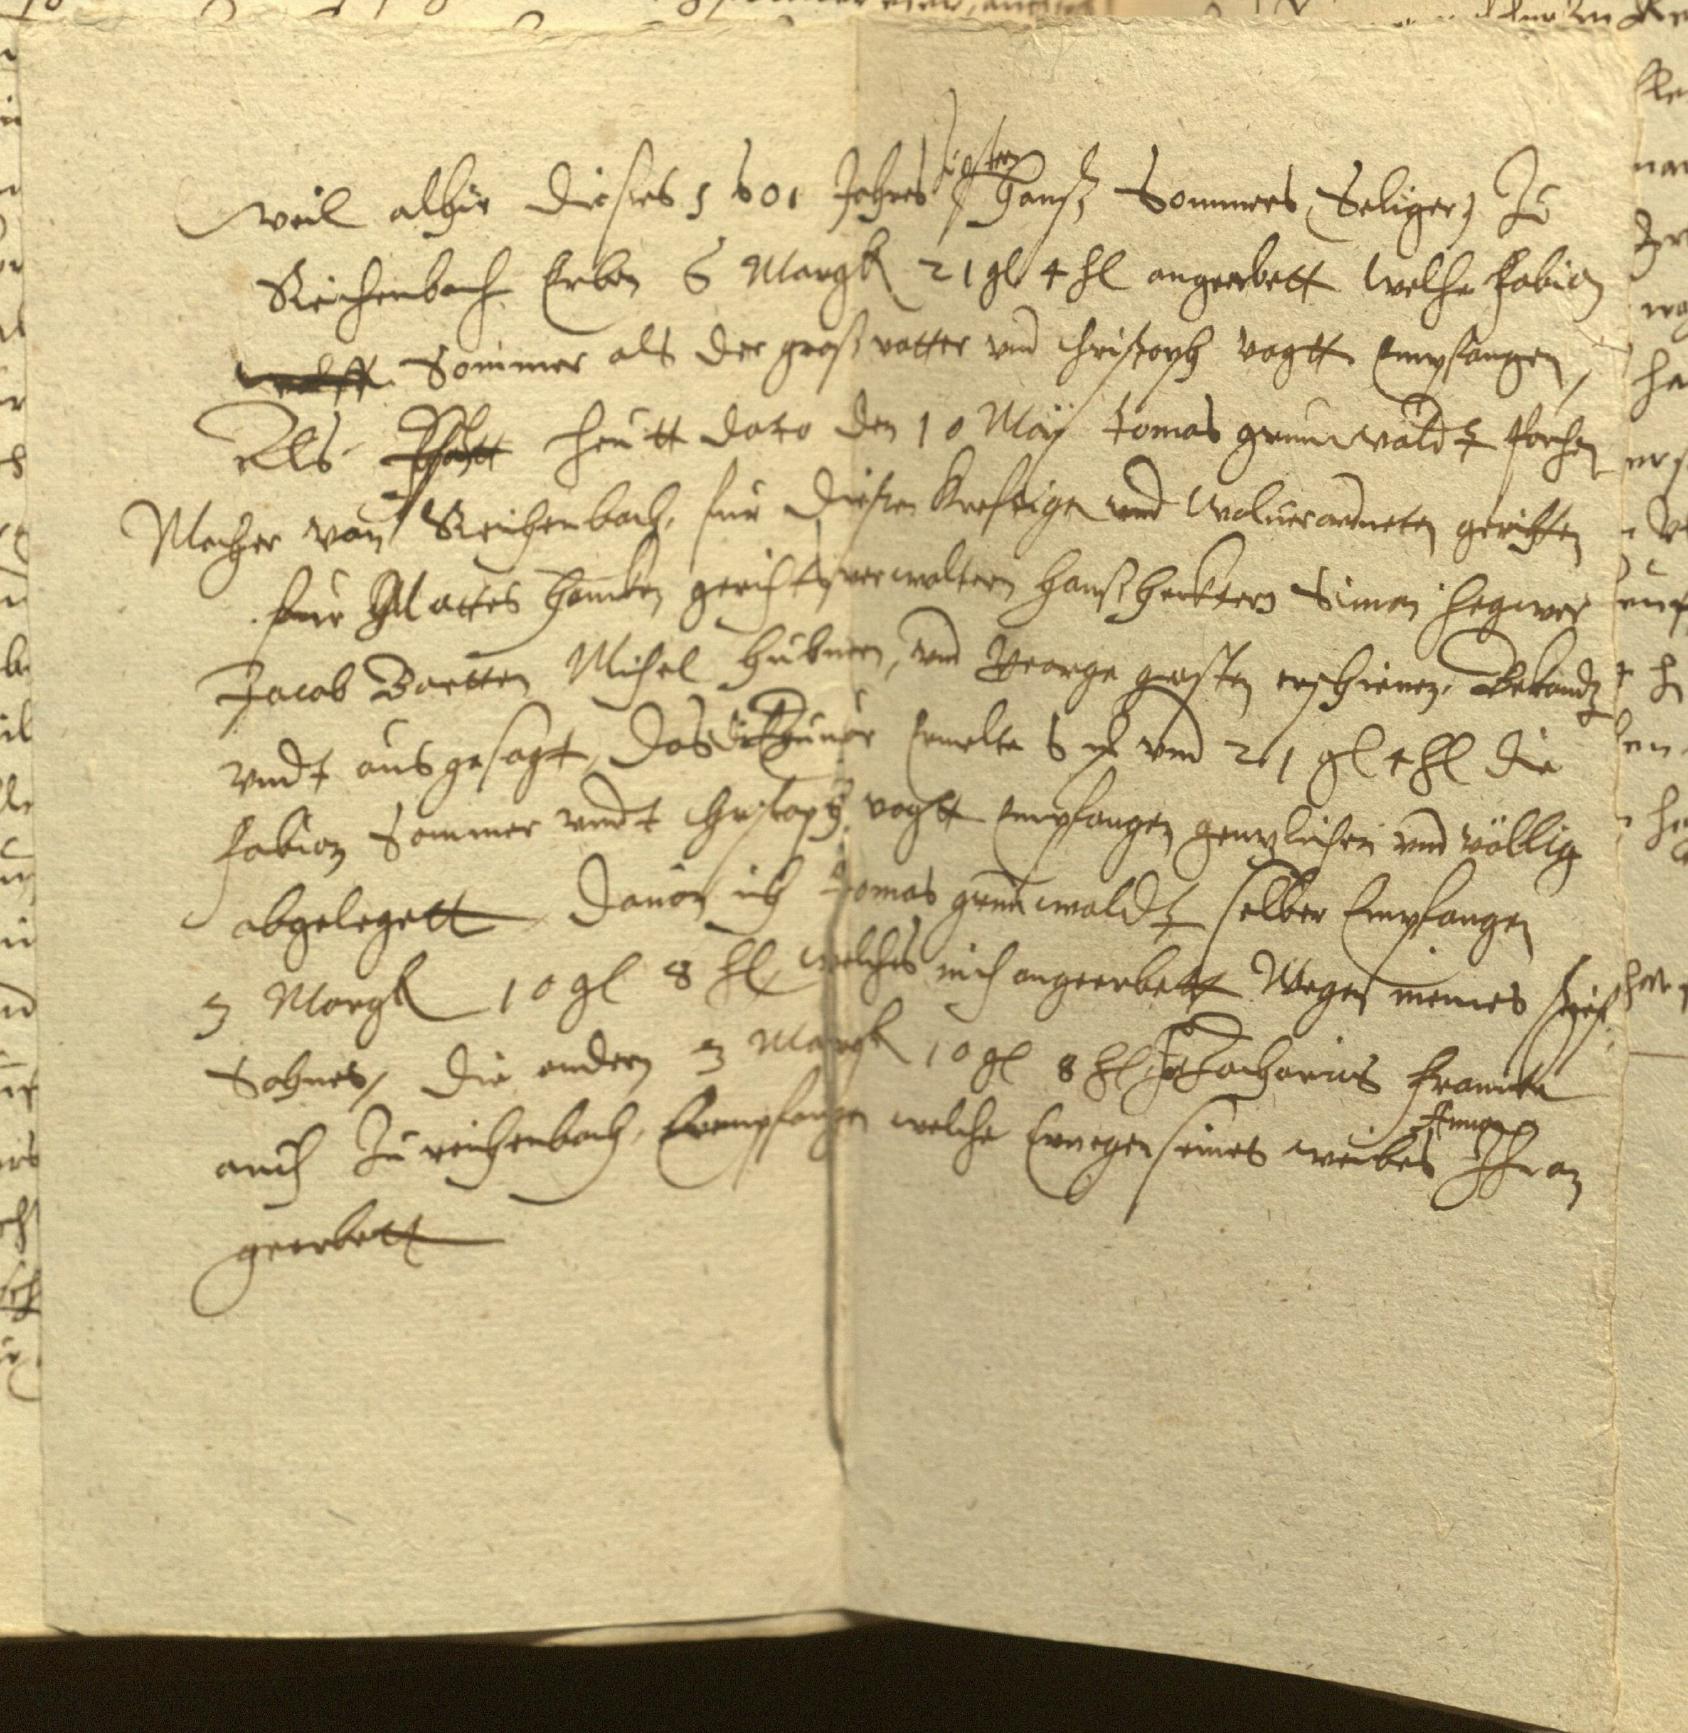 weil alhie dieses 1601 Jahres Hansz Sommers Seliger Zu
Reichenbach Erben 6 Margk 21 gl 4 hl angeerbett welche Fabian
Sommer als der grosvatter vnd Christoph Vogtt Empfangen,
Als heutt dato den 10 May Tomas grunwaldt
Macher von Reichenbach, fur diesen Krefftigen vnd woluerordneten gerichten
fur Mattes Hancken gerichtsverwaltern Hansz Simon Hegwer
Jacob Bartten Michel Hubner, vnd George erschienen, Bekandt
vndt ausgesagt, das Ermelte 6 vnd 21 gl 4 hl die
Fabian Sommer vndt Christoph vogtt empfangen gentzlichen vnd völlig
abgelegett, dauon ich Tomas grunwaldt selber Empfangen
3 Margk 10 gl 8 hl, welches mich angeerbett Wegen meines stief
Sohnes, die andern 3 Margk 10 gl 8 hl Zacharias Francke
auch Zu reichenbach, Empfangen welche Er wegen seines weibes Anna Ihr an
geerbett